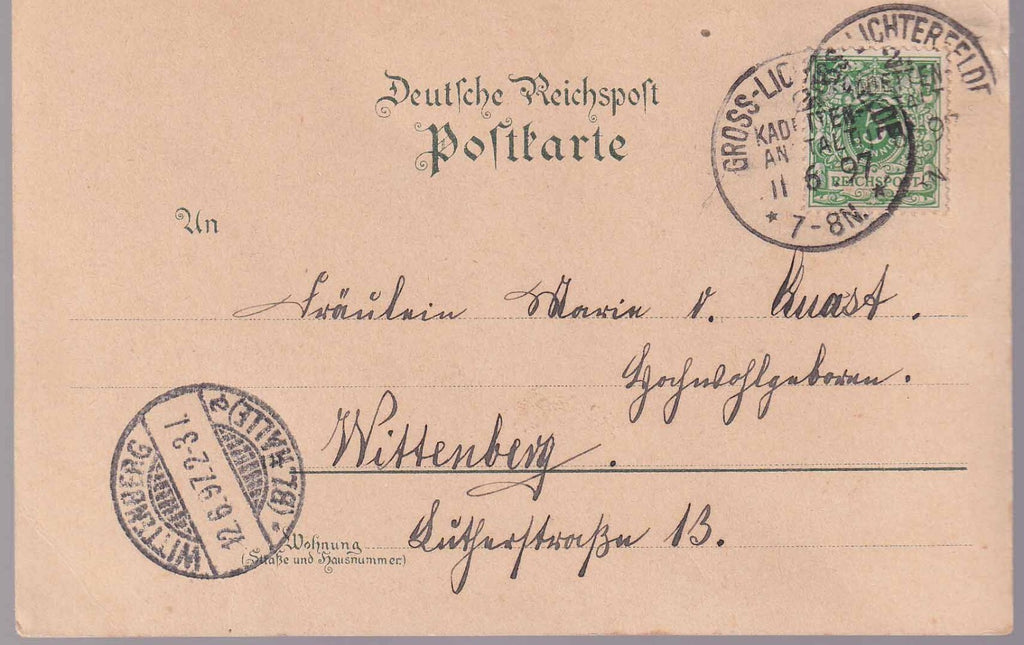 Deutsche Reichspost
Postkarte
GROSS-LICHTERFELDE
KADETTEN-
ANSTALT
11 6 97
* 7-8N. *
REICHSPOST
An
Fräulein Marie v. Quast.
Hochwohlgeboren.
Wittenberg.
WITTENBERG
12.6.97.2-3
* (BZ.HALLE)
Wohnung
(Straße und Hausnummer)
Lutherstraße 13.